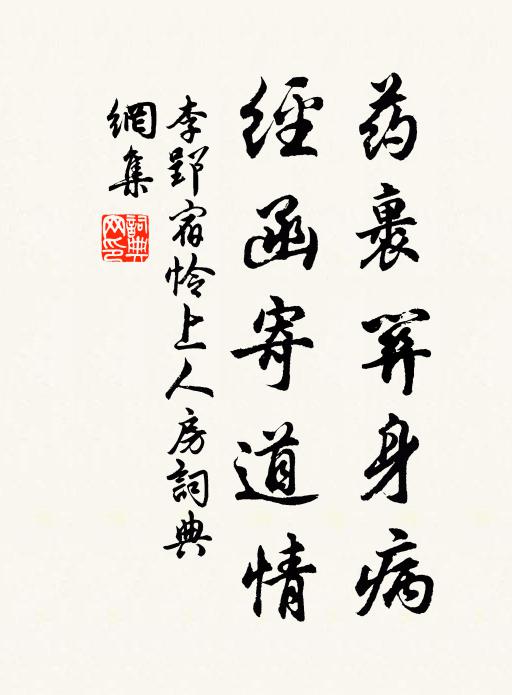 药裹关身病
經函寄道情
李郢宿怜上人房詞典
網集
詞典网印